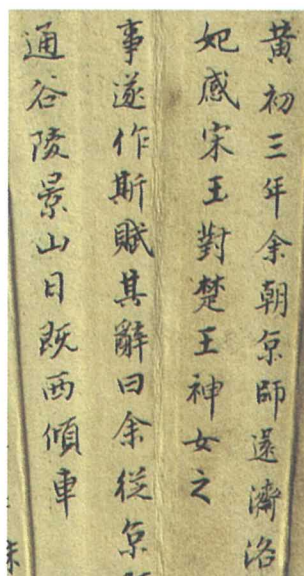 黃初三年余朝京師還濟洛
妃感宋玉對楚王神女之
事遂作斯賦其辭曰余從京
通谷陵景山日既西傾車